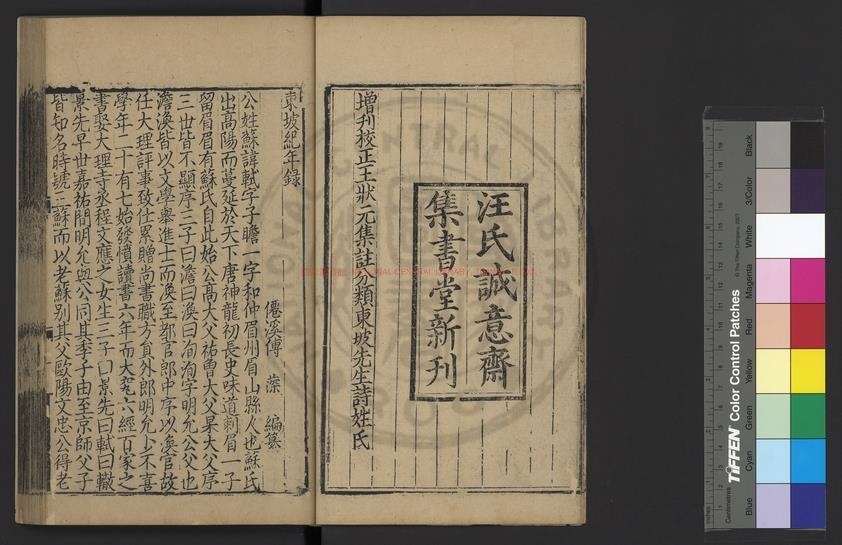 增刊校正王狀元集註分類東坡先生詩姓氏
汪氏誠意齋
集書堂新刊
東坡紀年錄
僊溪傅 藻 編纂
公姓蘇諱軾字子瞻一字和仲眉州眉山縣人也蘇氏
出高陽而蔓延於天下唐神龍初長史味道刺眉 子
留眉眉有蘇氏自此始公高大父祐曾大父杲大父序
三世皆不顯序三子曰澹曰渙曰洵洵字明允公父也
澹渙皆以文學舉進士而渙至都官郎中序以渙官故
任大理評事致仕累贈尚書職方員外郎明允少不喜
學年二十有七始發憤讀書六年而大究六經百家之
書娶大理寺丞程文應之女生三子曰景先曰軾曰轍
景先早世嘉祐間明允與公同其季子由至京師父子
皆知名時號三蘇而以老蘇別其父歐陽文忠公得老
NATIONAL CENTRAL LIBRARY
TIFFEN Color Control Patches
© The Tiffen Company, 2007
Centimetres
Blue
Cyan
Green
Yellow
Red
Magenta
White
3/Color
Black